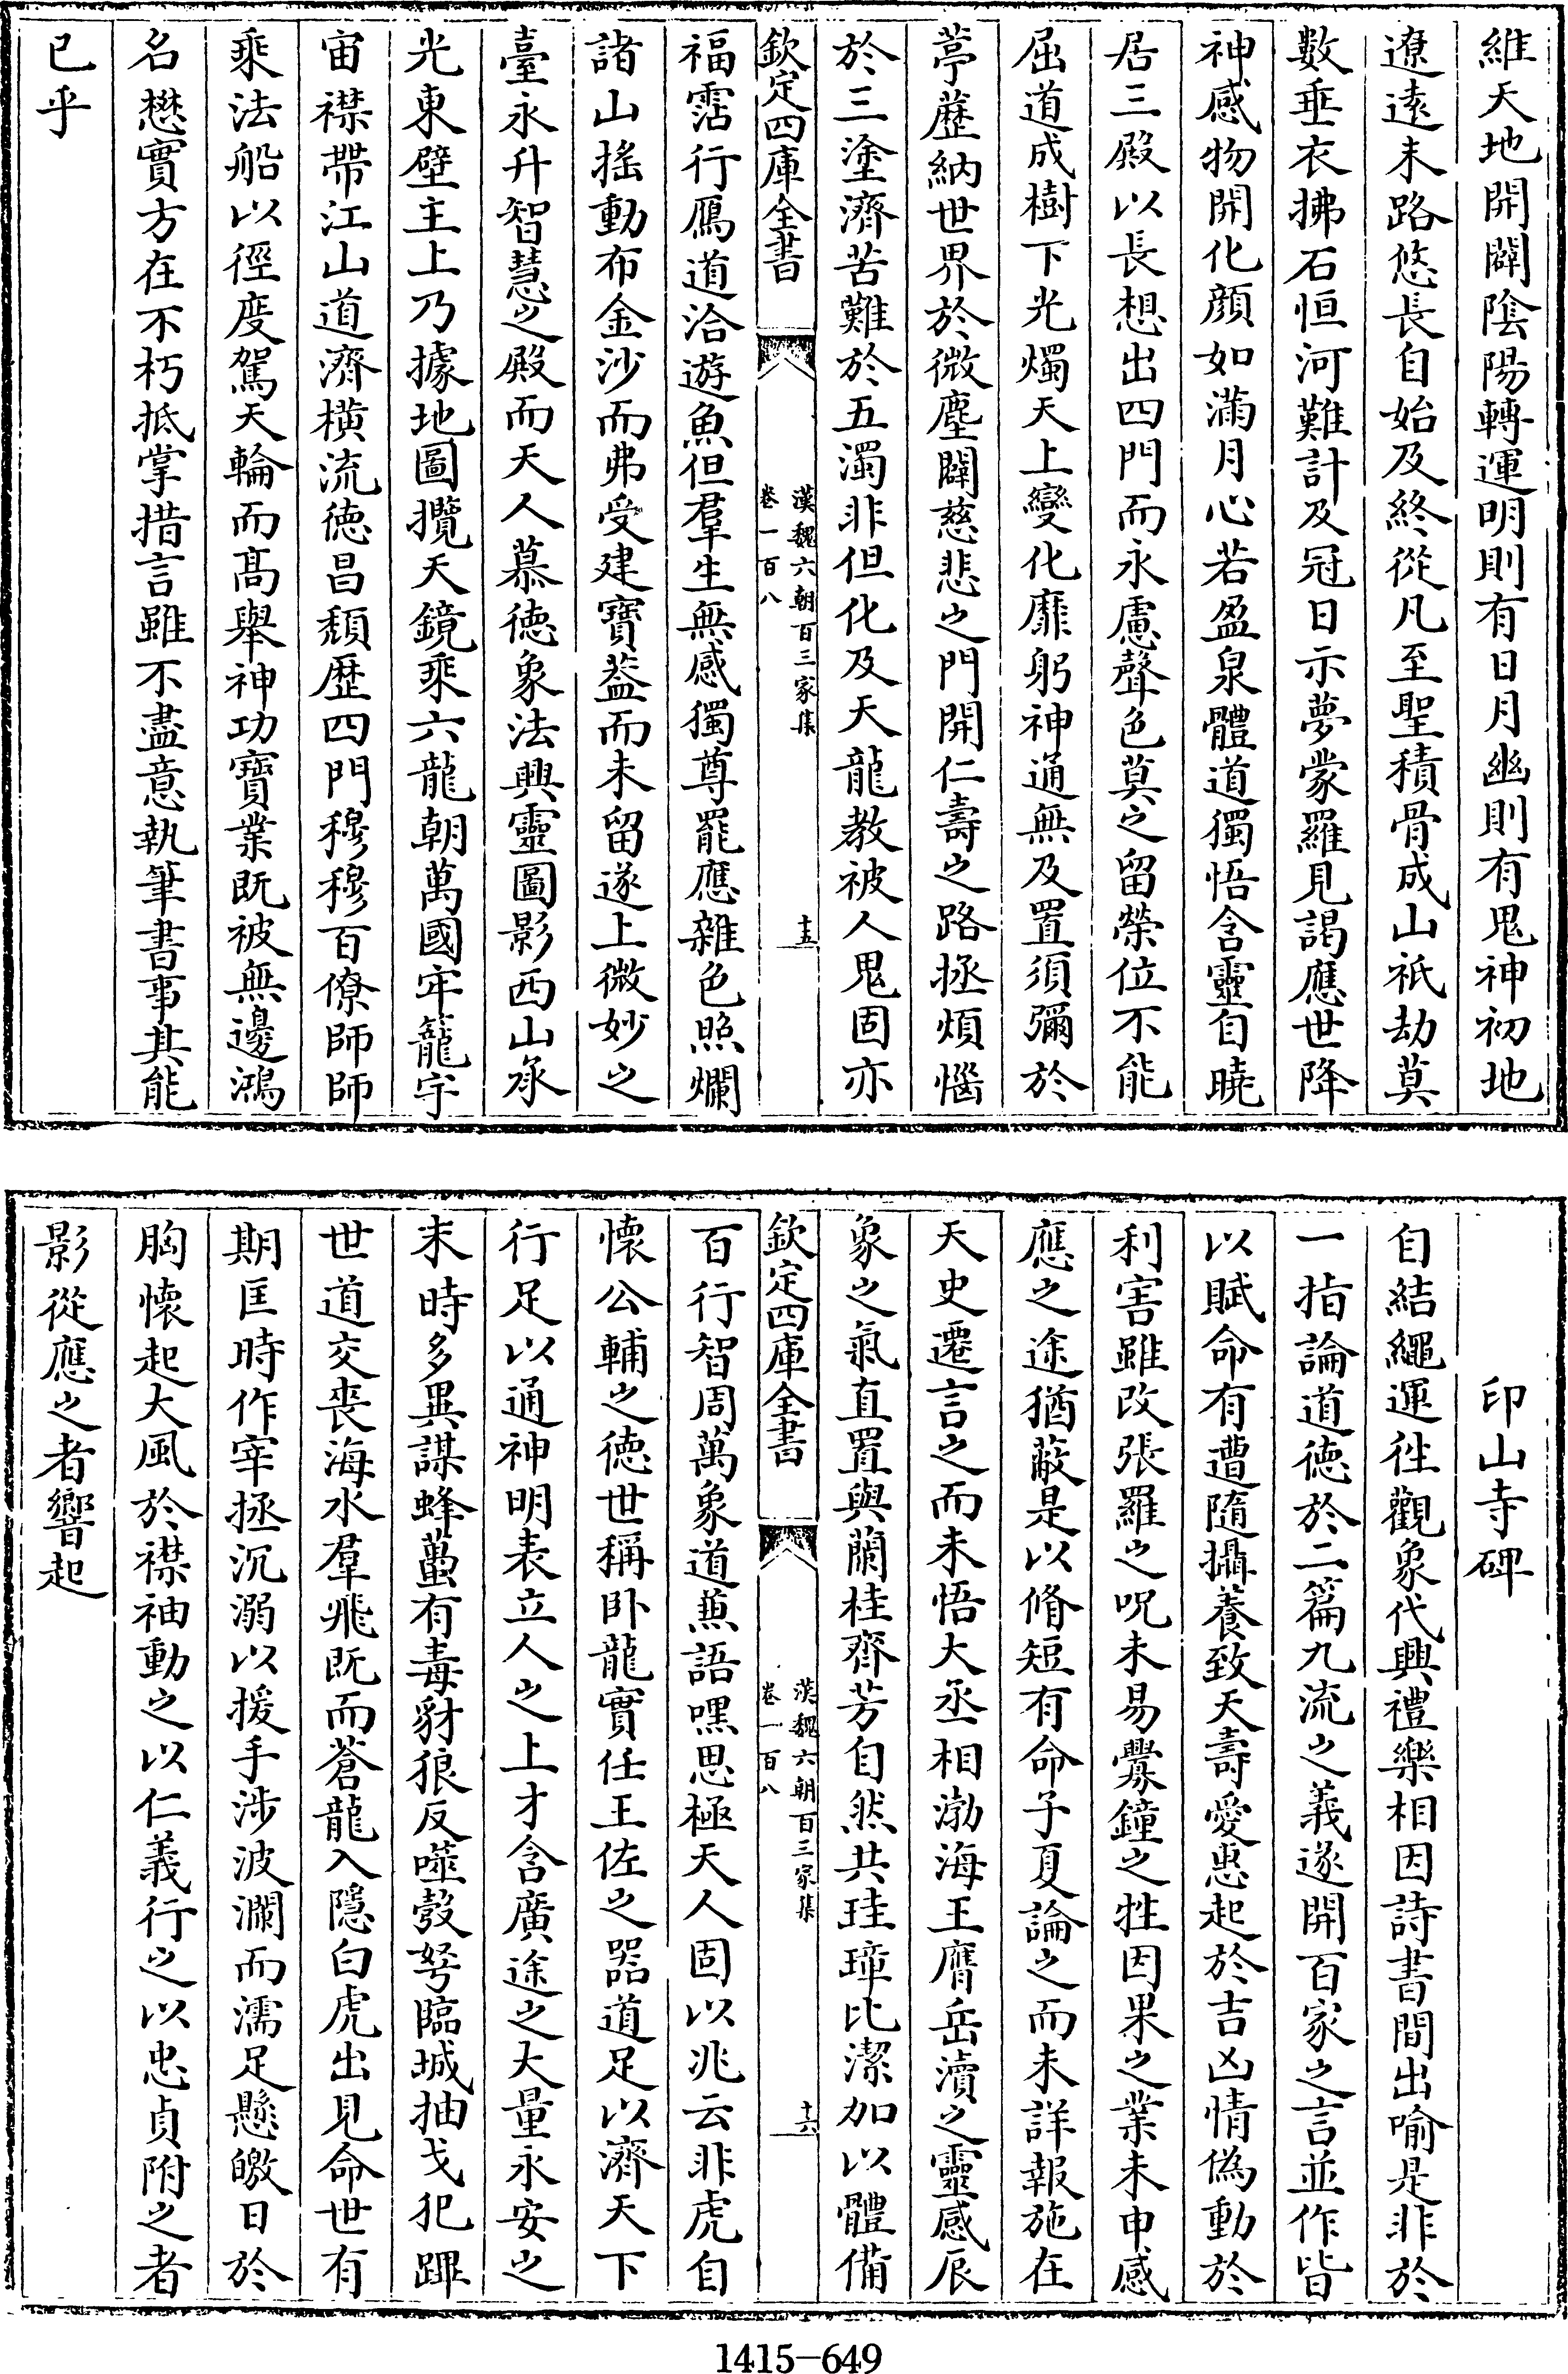 維天地開闢陰陽轉運明則有日月幽則有鬼神初地
遼遠末路悠長自始及終從凡至聖積骨成山祇劫莫
數垂衣拂石恒河難計及冠日示夢蒙羅見謁應世降
神感物開化顔如滿月心若盈泉體道獨悟含靈自曉
居三殿以長想出四門而永慮聲色莫之留榮位不能
屈道成樹下光燭天上變化靡躬神通無及置須彌於
葶藶納世界於微塵闢慈悲之門開仁壽之路拯煩惱
於三塗濟苦難於五濁非但化及天龍教被人鬼固亦
欽定四庫全書
漢魏六朝百三家集
卷一百八
十五
福霑行鴈道洽遊魚但羣生無感獨尊罷應雜色照爛
諸山搖動布金沙而弗受建寶葢而未留遂上微妙之
臺永升智慧之殿而天人慕徳象法興靈圖影西山承
光東壁主上乃據地圖攬天鏡乘六龍朝萬國牢籠宇
宙襟帶江山道濟橫流徳昌頽歴四門穆穆百僚師師
乘法船以徑度駕天輪而髙舉神功寶業既被無邊鴻
名懋實方在不朽抵掌措言雖不盡意執筆書事其能
已乎
印山寺碑
自結繩運徃觀象代興禮樂相因詩書間出喻是非於
一指論道徳於二篇九流之義遂開百家之言並作皆
以賦命有遭隨攝養致夭壽愛惠起於吉凶情偽動於
利害雖改張羅之呪未易釁鐘之牲因果之業未申感
應之途猶蔽是以脩短有命子夏論之而未詳報施在
天史遷言之而未悟大丞相渤海王膺岳瀆之靈感辰
象之氣直置與蘭桂齊芳自然共珪璋比潔加以體備
欽定四庫全書
漢魏六朝百三家集
卷一百八
十六
百行智周萬象道兼語嘿思極天人固以兆云非虎自
懷公輔之徳世稱卧龍實任王佐之器道足以濟天下
行足以通神明表立人之上才含廣途之大量永安之
末時多異謀蜂蠆有毒豺狼反噬彀弩臨城抽戈犯蹕
世道交喪海水羣飛既而蒼龍入隱白虎出見命世有
期匡時作宰拯沉溺以援手涉波瀾而濡足懸皦日於
胸懷起大風於襟袖動之以仁義行之以忠貞附之者
影從應之者響起
1415-649